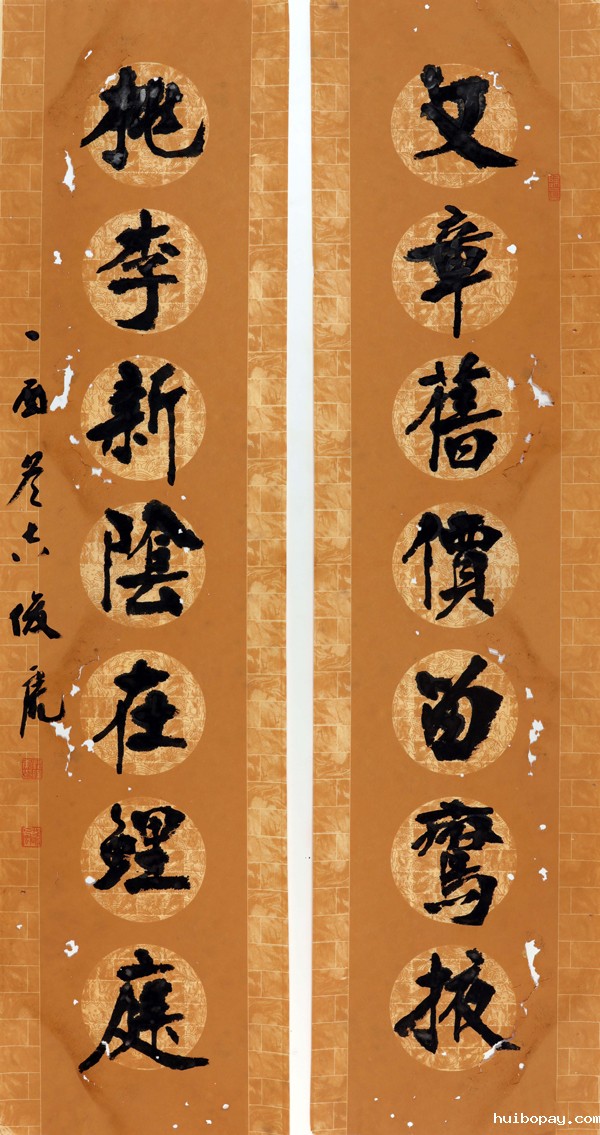 文章舊價留鸞掖
桃李新陰在鯉庭
酉冬俊
huibopay.com